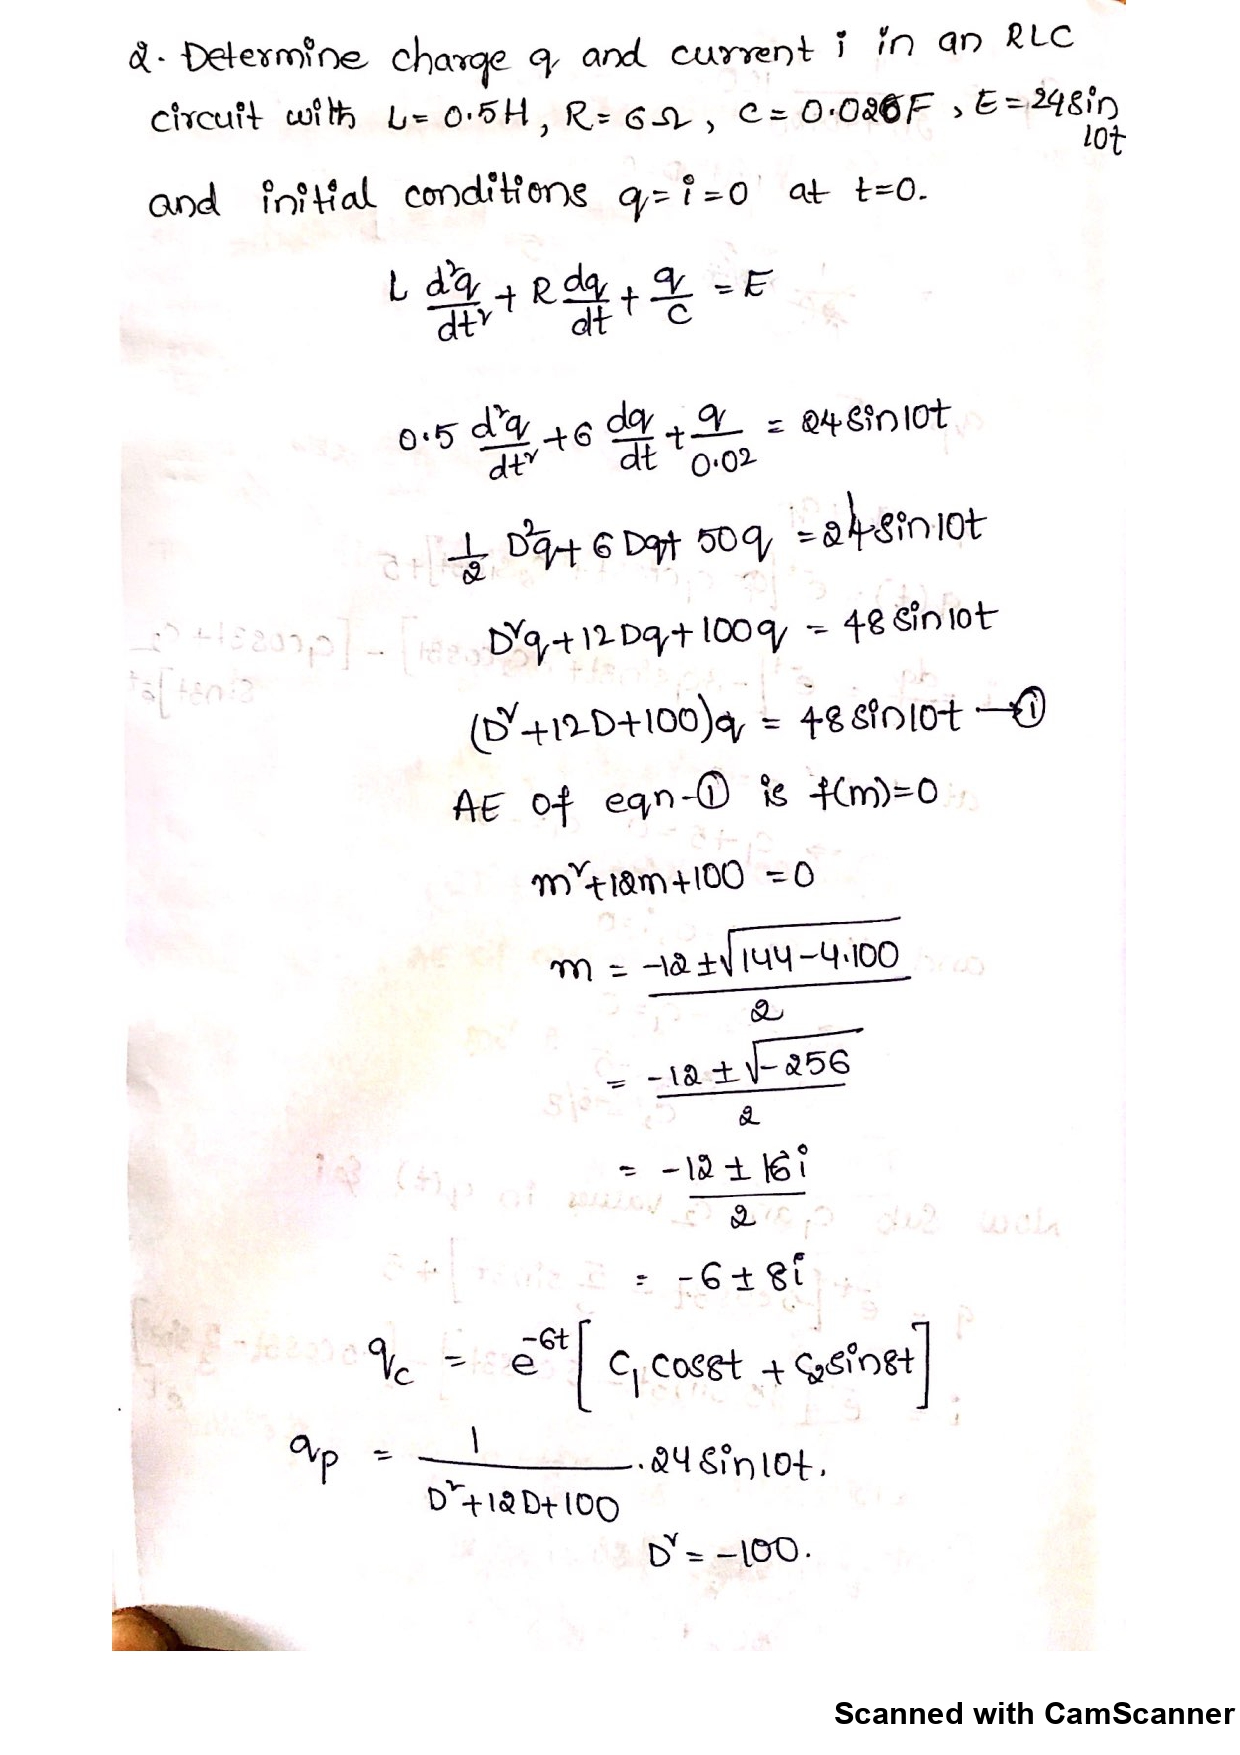 2. Determine charge q and current i in an RLC
circuit with L = 0.5H, R = 6Ω, C = 0.02F, E = 24 sin
10t
and initial conditions q = i = 0 at t=0.
L d²q/dt² + R dq/dt + q/C = E
0.5 d²q/dt² + 6 dq/dt + q/0.02 = 24 sin10t
1/2 D²q + 6 Dq + 50q = 24 sin10t
D²q + 12Dq + 100q = 48 sin10t
(D² + 12D + 100)q = 48 sin10t → ①
AE of eqn-① is f(m)=0
m² + 12m + 100 = 0
m = -12 ± √144-4.100 / 2
= -12 ± √-256 / 2
= -12 ± 16i / 2
= -6 ± 8i
qc = e^-6t [ C₁ cos8t + C₂ sin8t ]
qp = 1 / D² + 12D + 100 . 24 sin10t.
D² = -100.
Scanned with CamScanner